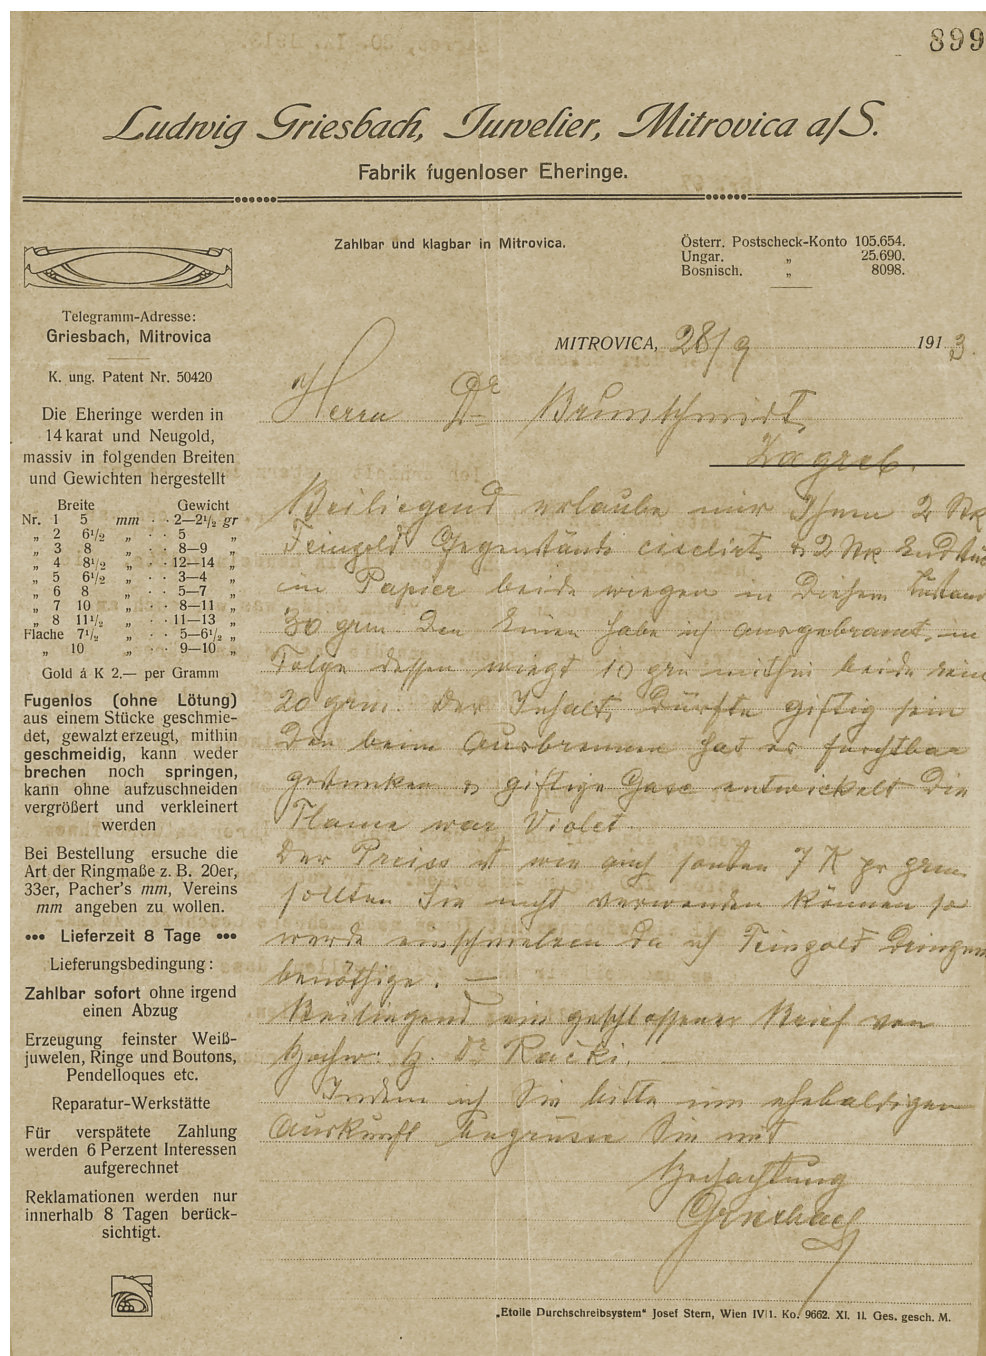 899
Ludwig Griesbach, Juwelier, Mitrovica a/S.
Fabrik fugenloser Eheringe.
Zahlbar und klagbar in Mitrovica.
Österr. Postscheck-Konto 105.654.
Ungar. „ 25.690.
Bosnisch. „ 8098.
Telegramm-Adresse:
Griesbach, Mitrovica
K. ung. Patent Nr. 50420
Die Eheringe werden in
14 karat und Neugold,
massiv in folgenden Breiten
und Gewichten hergestellt
Breite Gewicht
Nr. 1 5 mm · · 2—2½ gr
„ 2 6½ „ · · 5 „
„ 3 8 „ · · 8—9 „
„ 4 8½ „ · · 12—14 „
„ 5 6½ „ · · 3—4 „
„ 6 8 „ · · 5—7 „
„ 7 10 „ · · 8—11 „
„ 8 11½ „ · · 11—13 „
Flache 7½ „ · · 5—6½ „
„ 10 „ · · 9—10 „
Gold á K 2.— per Gramm
Fugenlos (ohne Lötung)
aus einem Stücke geschmie-
det, gewalzt erzeugt, mithin
geschmeidig, kann weder
brechen noch springen,
kann ohne aufzuschneiden
vergrößert und verkleinert
werden
Bei Bestellung ersuche die
Art der Ringmaße z. B. 20er,
33er, Pacher's mm, Vereins
mm angeben zu wollen.
••• Lieferzeit 8 Tage •••
Lieferungsbedingung:
Zahlbar sofort ohne irgend
einen Abzug
Erzeugung feinster Weiß-
juwelen, Ringe und Boutons,
Pendelloques etc.
Reparatur-Werkstätte
Für verspätete Zahlung
werden 6 Perzent Interessen
aufgerechnet
Reklamationen werden nur
innerhalb 8 Tagen berück-
sichtigt.
MITROVICA, 28/9 1913.
Herrn Dr Brunschmidt
Zagreb.
Beiliegend erlaube mir Ihnen 2 Stk
Feingold Gegenstände ciselirt & 2 Stk Endstüc
im Papier beide wiegen in diesem Zustand
30 grm. Den Einen habe ich ausgebrannt, in
Folge dessen wiegt 10 grm mithin beide rein
20 grm. Der Inhalt dürfte giftig sein
den beim Ausbrennen hat es furchtbar
gestunken & giftige Gase entwickelt die
Flame war Violet.
Der Preiss ist wie auch sonsten 7 K pr grm.
sollten Sie nicht verwenden können so
werde einschmelzen da ich Feingold dringen
benöthige. —
Beiliegend ein geschlossener Brief von
Hochw. H. Dr Rački. —
Indem ich Sie bitte um ehebaldigen
Auskunft begrüsse Sie mit
Hochachtung
Griesbach
„Etoile Durchschreibsystem“ Josef Stern, Wien IV/1. Ko. 9662. XI. 11. Ges. gesch. M.